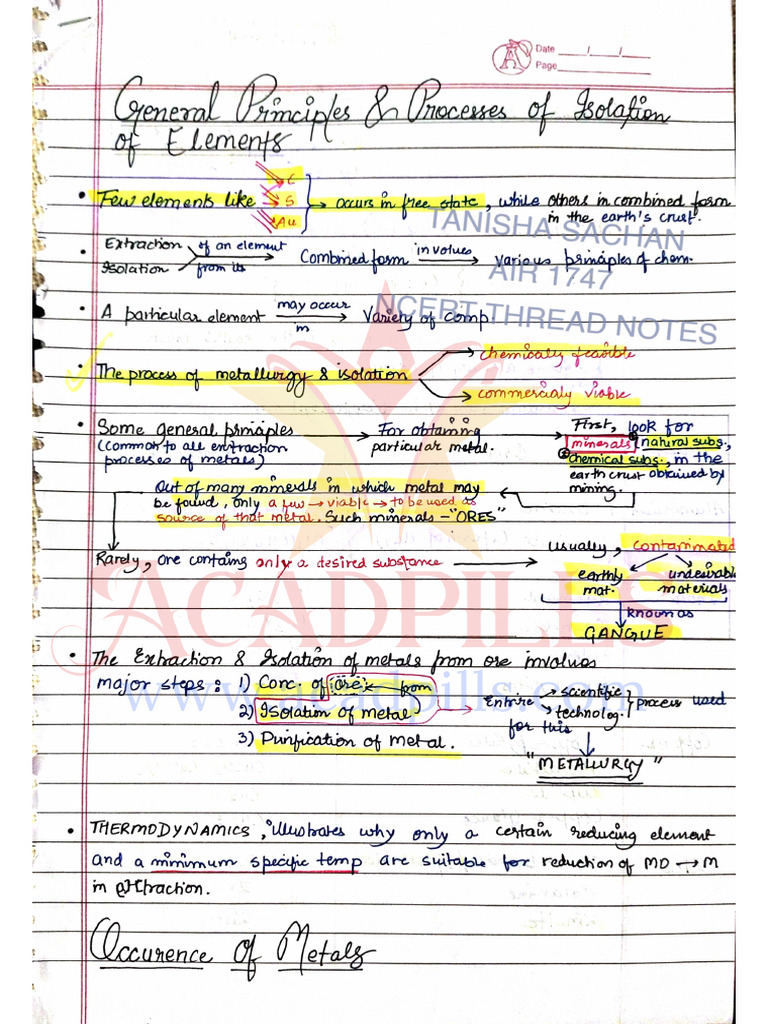 Date ___/___/___
Page
General Principles & Processes of Isolation
of Elements
C
• Few elements like → S → occurs in free state, while others in combined form
Au in the earth's crust.
TANISHA SACHAN
• Extraction of an element Combined form involves → various principles of chem.
Isolation from its
AIR 1747
• A particular element may occur → Variety of comp.
in
NCERT THREAD NOTES
chemically feasible
• The process of metallurgy & isolation
commercialy viable
• Some general principles → For obtaining → First, look for
(Common to all extraction particular metal. minerals natural subs.,
processes of metals) chemical subs., in the
earth crust obtained by
mining.
Out of many minerals in which metal may
be found, only a few → viable → to be used as
source of that metal. Such minerals - "ORES"
usually, contaminated
Rarely, ore contains only a desired substance →
earthly undesirable
mat. materials
known as
GANGUE
ACADPILLS
• The Extraction & Isolation of metals from ore involves
major steps: 1) Conc. of ore from
2) Isolation of metal → Entire → scientific process used
→ technolog.
for this
3) Purification of metal.
"METALLURGY"
www.acadpills.com
• THERMODYNAMICS, illustrates why only a certain reducing element
and a minimum specific temp are suitable for reduction of MO → M
in extraction.
Occurence of Metals